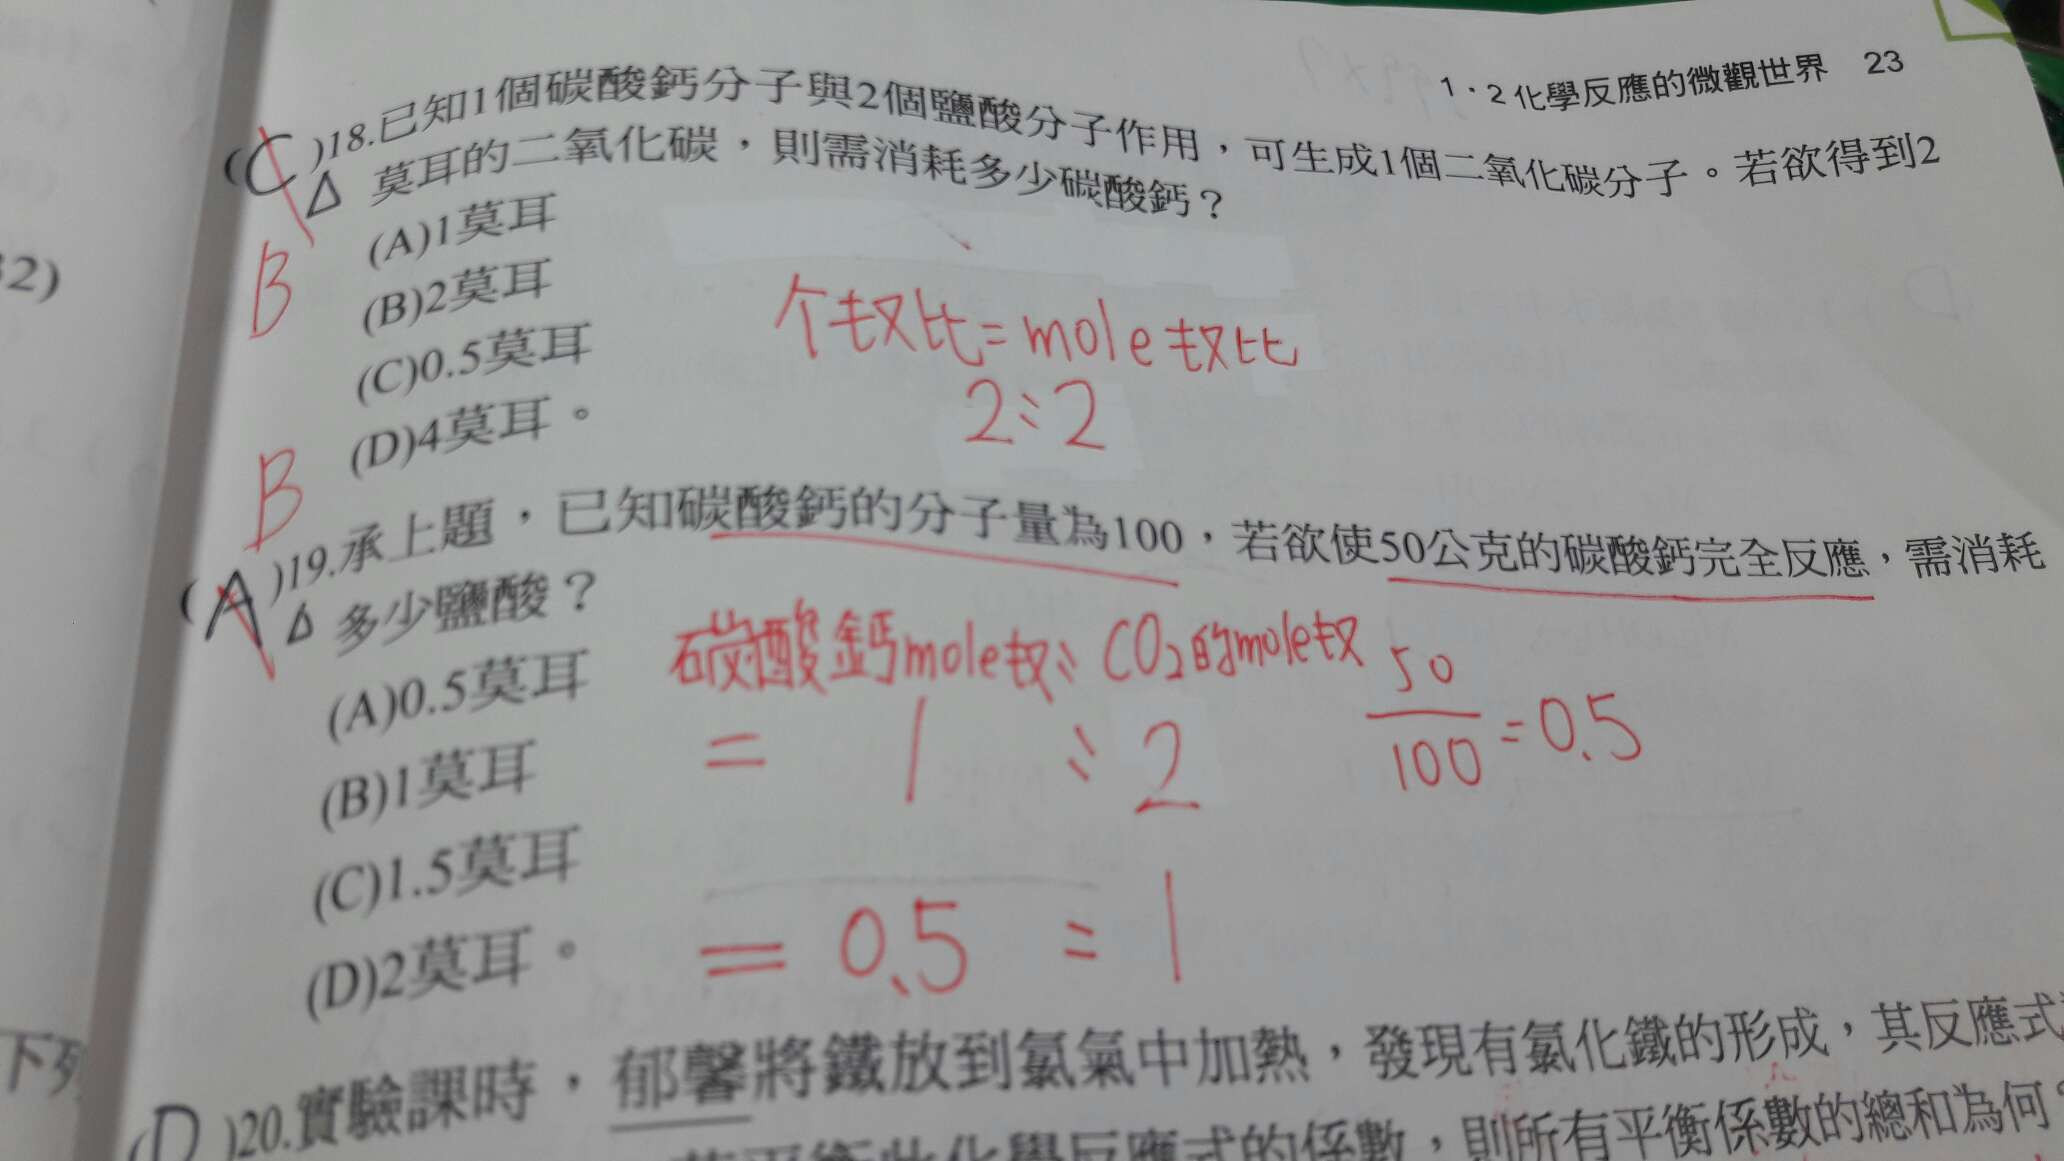 1．2化學反應的微觀世界 23
(C)18.已知1個碳酸鈣分子與2個鹽酸分子作用，可生成1個二氧化碳分子。若欲得到2
△ 莫耳的二氧化碳，則需消耗多少碳酸鈣？
B
(A)1莫耳
(B)2莫耳
(C)0.5莫耳
(D)4莫耳。
个数比=mole数比
2:2
B
(A)19.承上題，已知碳酸鈣的分子量為100，若欲使50公克的碳酸鈣完全反應，需消耗
△ 多少鹽酸？
(A)0.5莫耳
(B)1莫耳
(C)1.5莫耳
(D)2莫耳。
碳酸鈣mole数:CO2的mole数
= 1 : 2
50/100=0.5
= 0.5 = 1
(D)20.實驗課時，郁馨將鐵放到氯氣中加熱，發現有氯化鐵的形成，其反應式
學反應式的係數，則所有平衡係數的總和為何
32)
下列